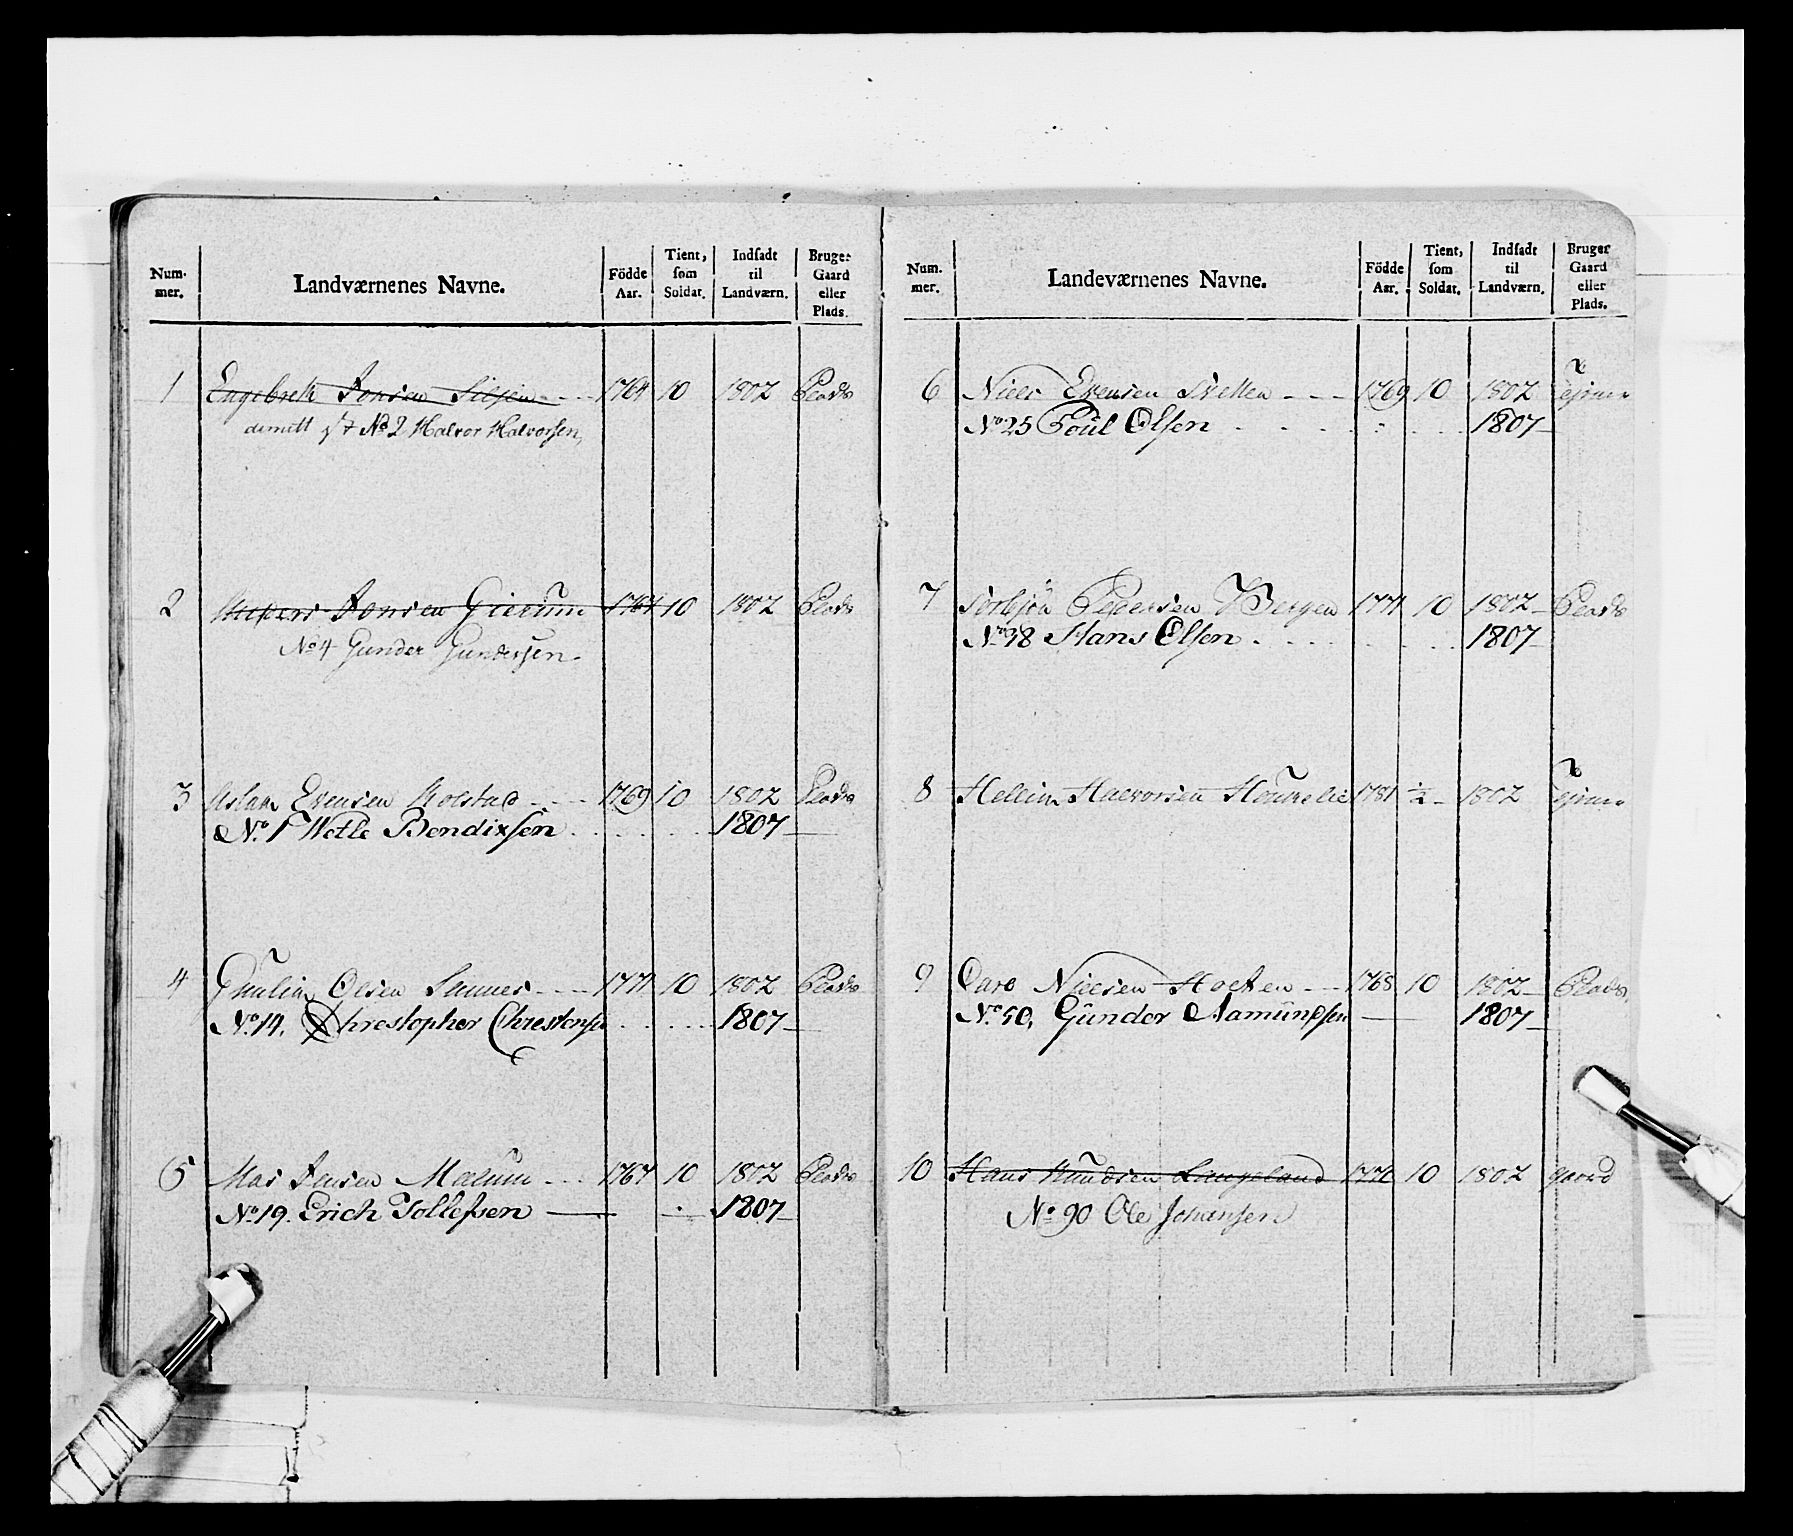 Num. mer. Landværnenes Navne. Födde Aar. Tient, som Soldat. Indsadt til Landværn. Bruger Gaard eller Plads.
1 Engebreth Jonsen Siljen 1764 10 1802 Plads
dimitt No 2 Halvor Halvorsen,
2 Jonsen Gierum 1764 10 1802 Plads
No 4 Gunder Gundersen
3 Aslak Evensen Kolstad 1769 10 1802 Plads
No. 1 Wetle Bendixsen 1807
4 Olsen 1771 10 1802 Plads
No. 14. Christopher Christensen 1807
5 Jensen Mælum 1767 10 1802 Plads
No. 19. Erich Tollefsen 1807
Num. mer. Landeværnenes Navne. Födde Aar. Tient, som Soldat. Indsadt til Landværn. Bruger Gaard eller Plads.
6 Niels Evensen 1769 10 1802
No 25 Poul Olsen 1807
7 Torbjön Pedersen Bergen 1771 10 1802 Plads
No 38 Hans Olsen 1807
8 Halvorsen 1781 1/2 1802
9 Nielsen 1768 10 1802 Plads
No. 50, Gunder Aamundsen 1807
10 Hans Knudsen Langeland 1770 10 1802 gaard
No 90 Ole Johansen